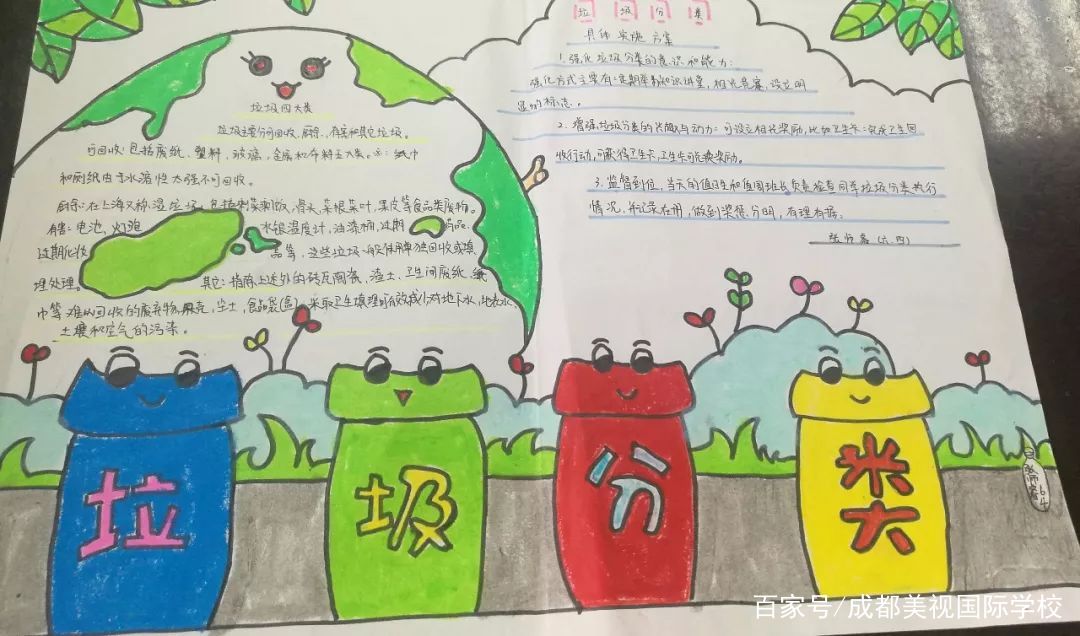 垃圾四大类
垃圾主要分可回收、厨余、有害和其它垃圾。
可回收:包括废纸、塑料、玻璃、金属和布料五大类。纸巾
和厕纸由于水溶性太强不可回收。
厨余:在上海又称湿垃圾,包括剩菜剩饭,骨头,菜根菜叶,果皮等食品类废物。
有害:电池,灯泡 水银温度计,油漆桶,过期药品,
过期化妆品等,这些垃圾一般使用单独回收或填
埋处理。其它:指除上述外的砖瓦陶瓷,渣土,卫生间废纸,纸
巾等难以回收的废弃物,果壳,尘土,食品袋(盒)。采取卫生填埋可有效减少对地下水,地表水,
土壤和空气的污染。
垃圾分类
具体实施方案
1.强化垃圾分类的意识和能力:
强化方式主要有:定期举办知识讲堂,相关竞赛,设立明
显的标志。
2.增强垃圾分类的兴趣与动力:可设立相关奖励,比如卫生卡:完成卫生回
收行动,可获得卫生卡,卫生卡可兑换奖励。
3.监督到位,当天的值日生和值周班长负责检查同学垃圾分类执行
情况,并记录在册,做到奖惩分明,有理有据。
(六.四)
垃 圾 分 类
6.4
百家号/成都美视国际学校